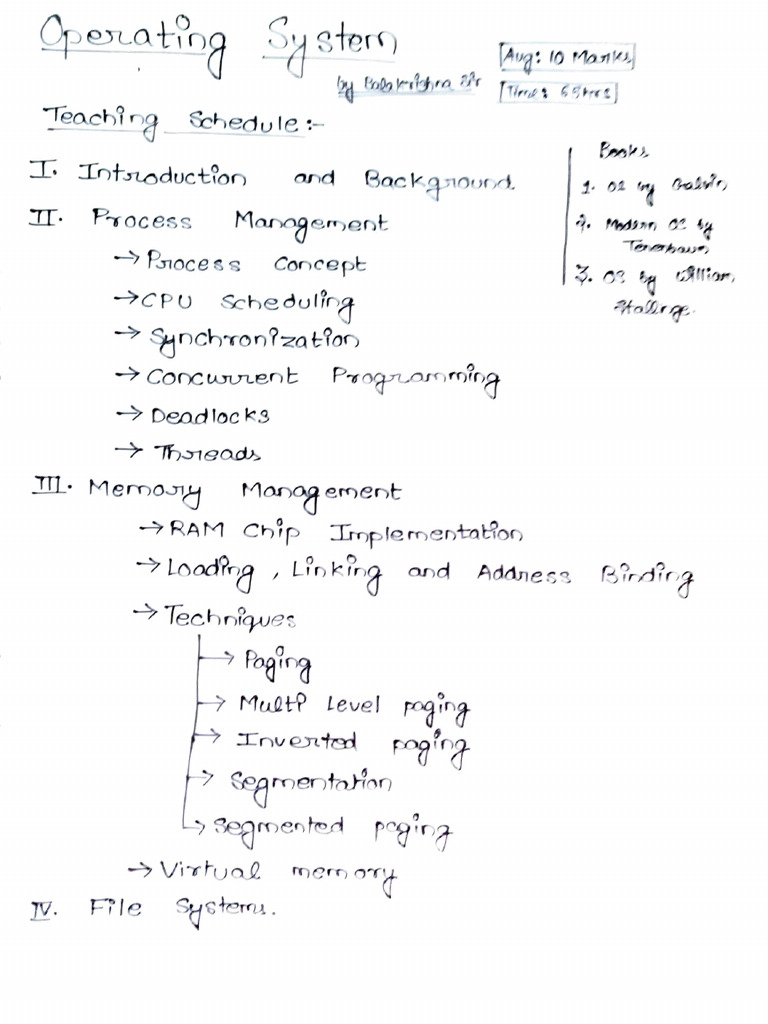 Operating System
by Balakrishna Sir
[Aug: 10 Marks]
[Time: 65Hrs]
Teaching Schedule:-
I. Introduction and Background.
II. Process Management
→ Process Concept
→ CPU Scheduling
→ Synchronization
→ Concurrent Programming
→ Deadlocks
→ Threads
Books
1. OS by Galvin
2. Modern OS by
Tenenbaum
3. OS by William
Stallings.
III. Memory Management
→ RAM Chip Implementation
→ Loading, Linking and Address Binding
→ Techniques
→ Paging
→ Multi Level paging
→ Inverted paging
→ Segmentation
→ Segmented paging
→ Virtual memory
IV. File Systems.